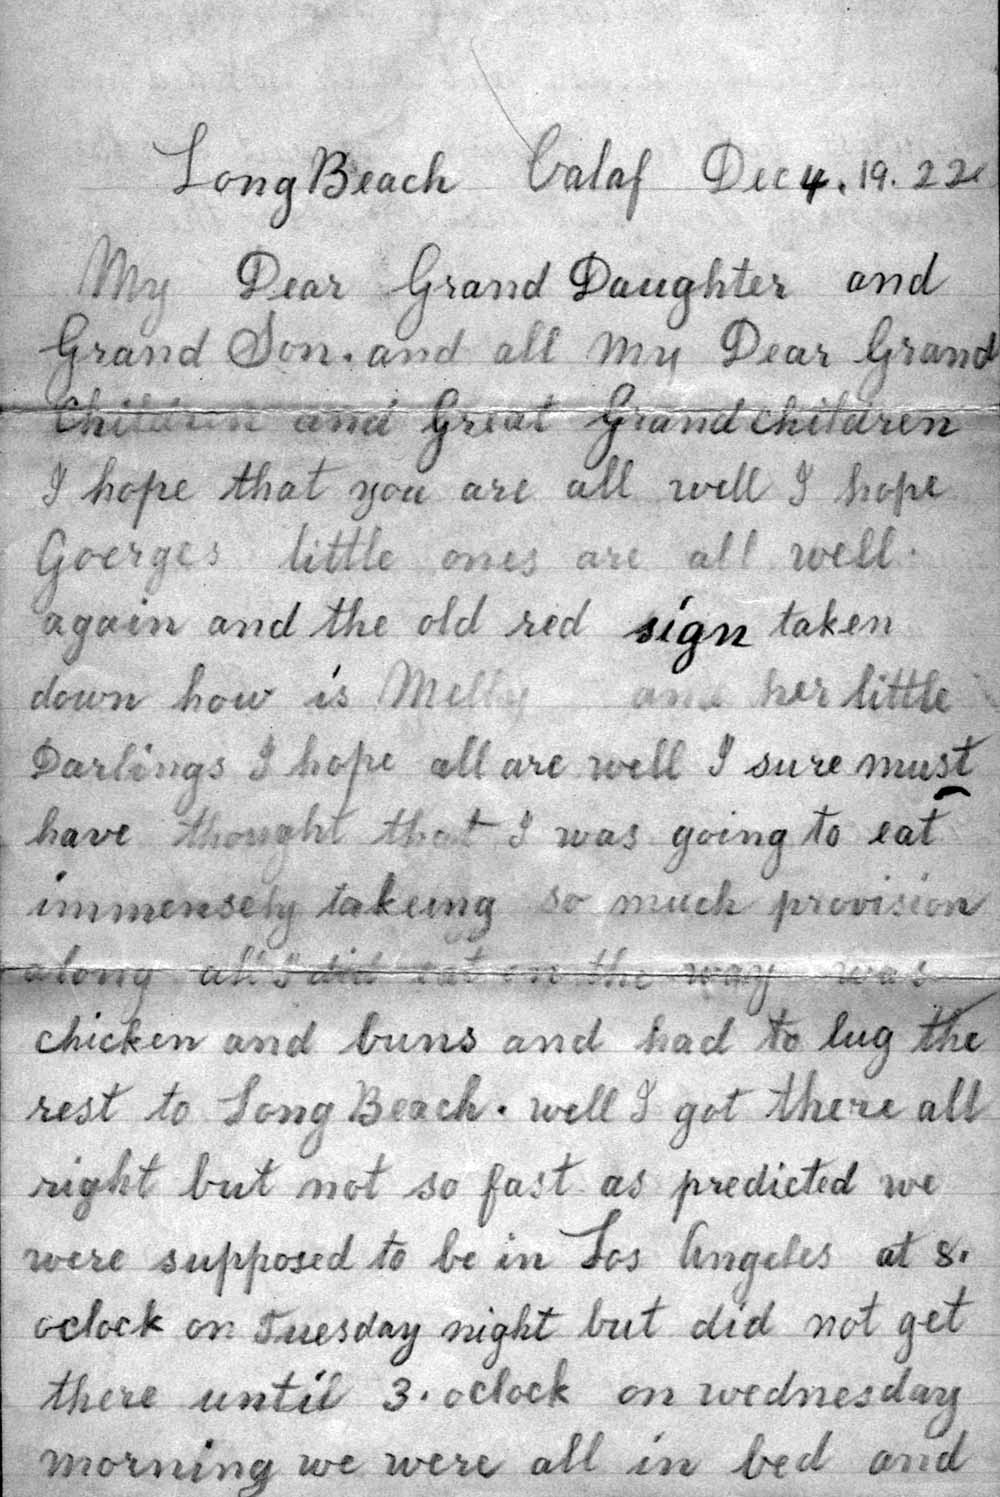 Long Beach Calaf Dec 4. 19. 22
My Dear Grand Daughter and
Grand Son. and all My Dear Grand
Children and Great Grandchildren
I hope that you are all well I hope
Goerges little ones are all well.
again and the old red sign taken
down how is Melly and her little
Darlings I hope all are well I sure must
have thought that I was going to eat
immensely takeing so much provision
along all I did eat on the way was
chicken and buns and had to lug the
rest to Long Beach. well I got there all
right but not so fast as predicted we
were supposed to be in Los Angeles at 8.
oclock on Tuesday night but did not get
there until 3. oclock on wednesday
morning we were all in bed and